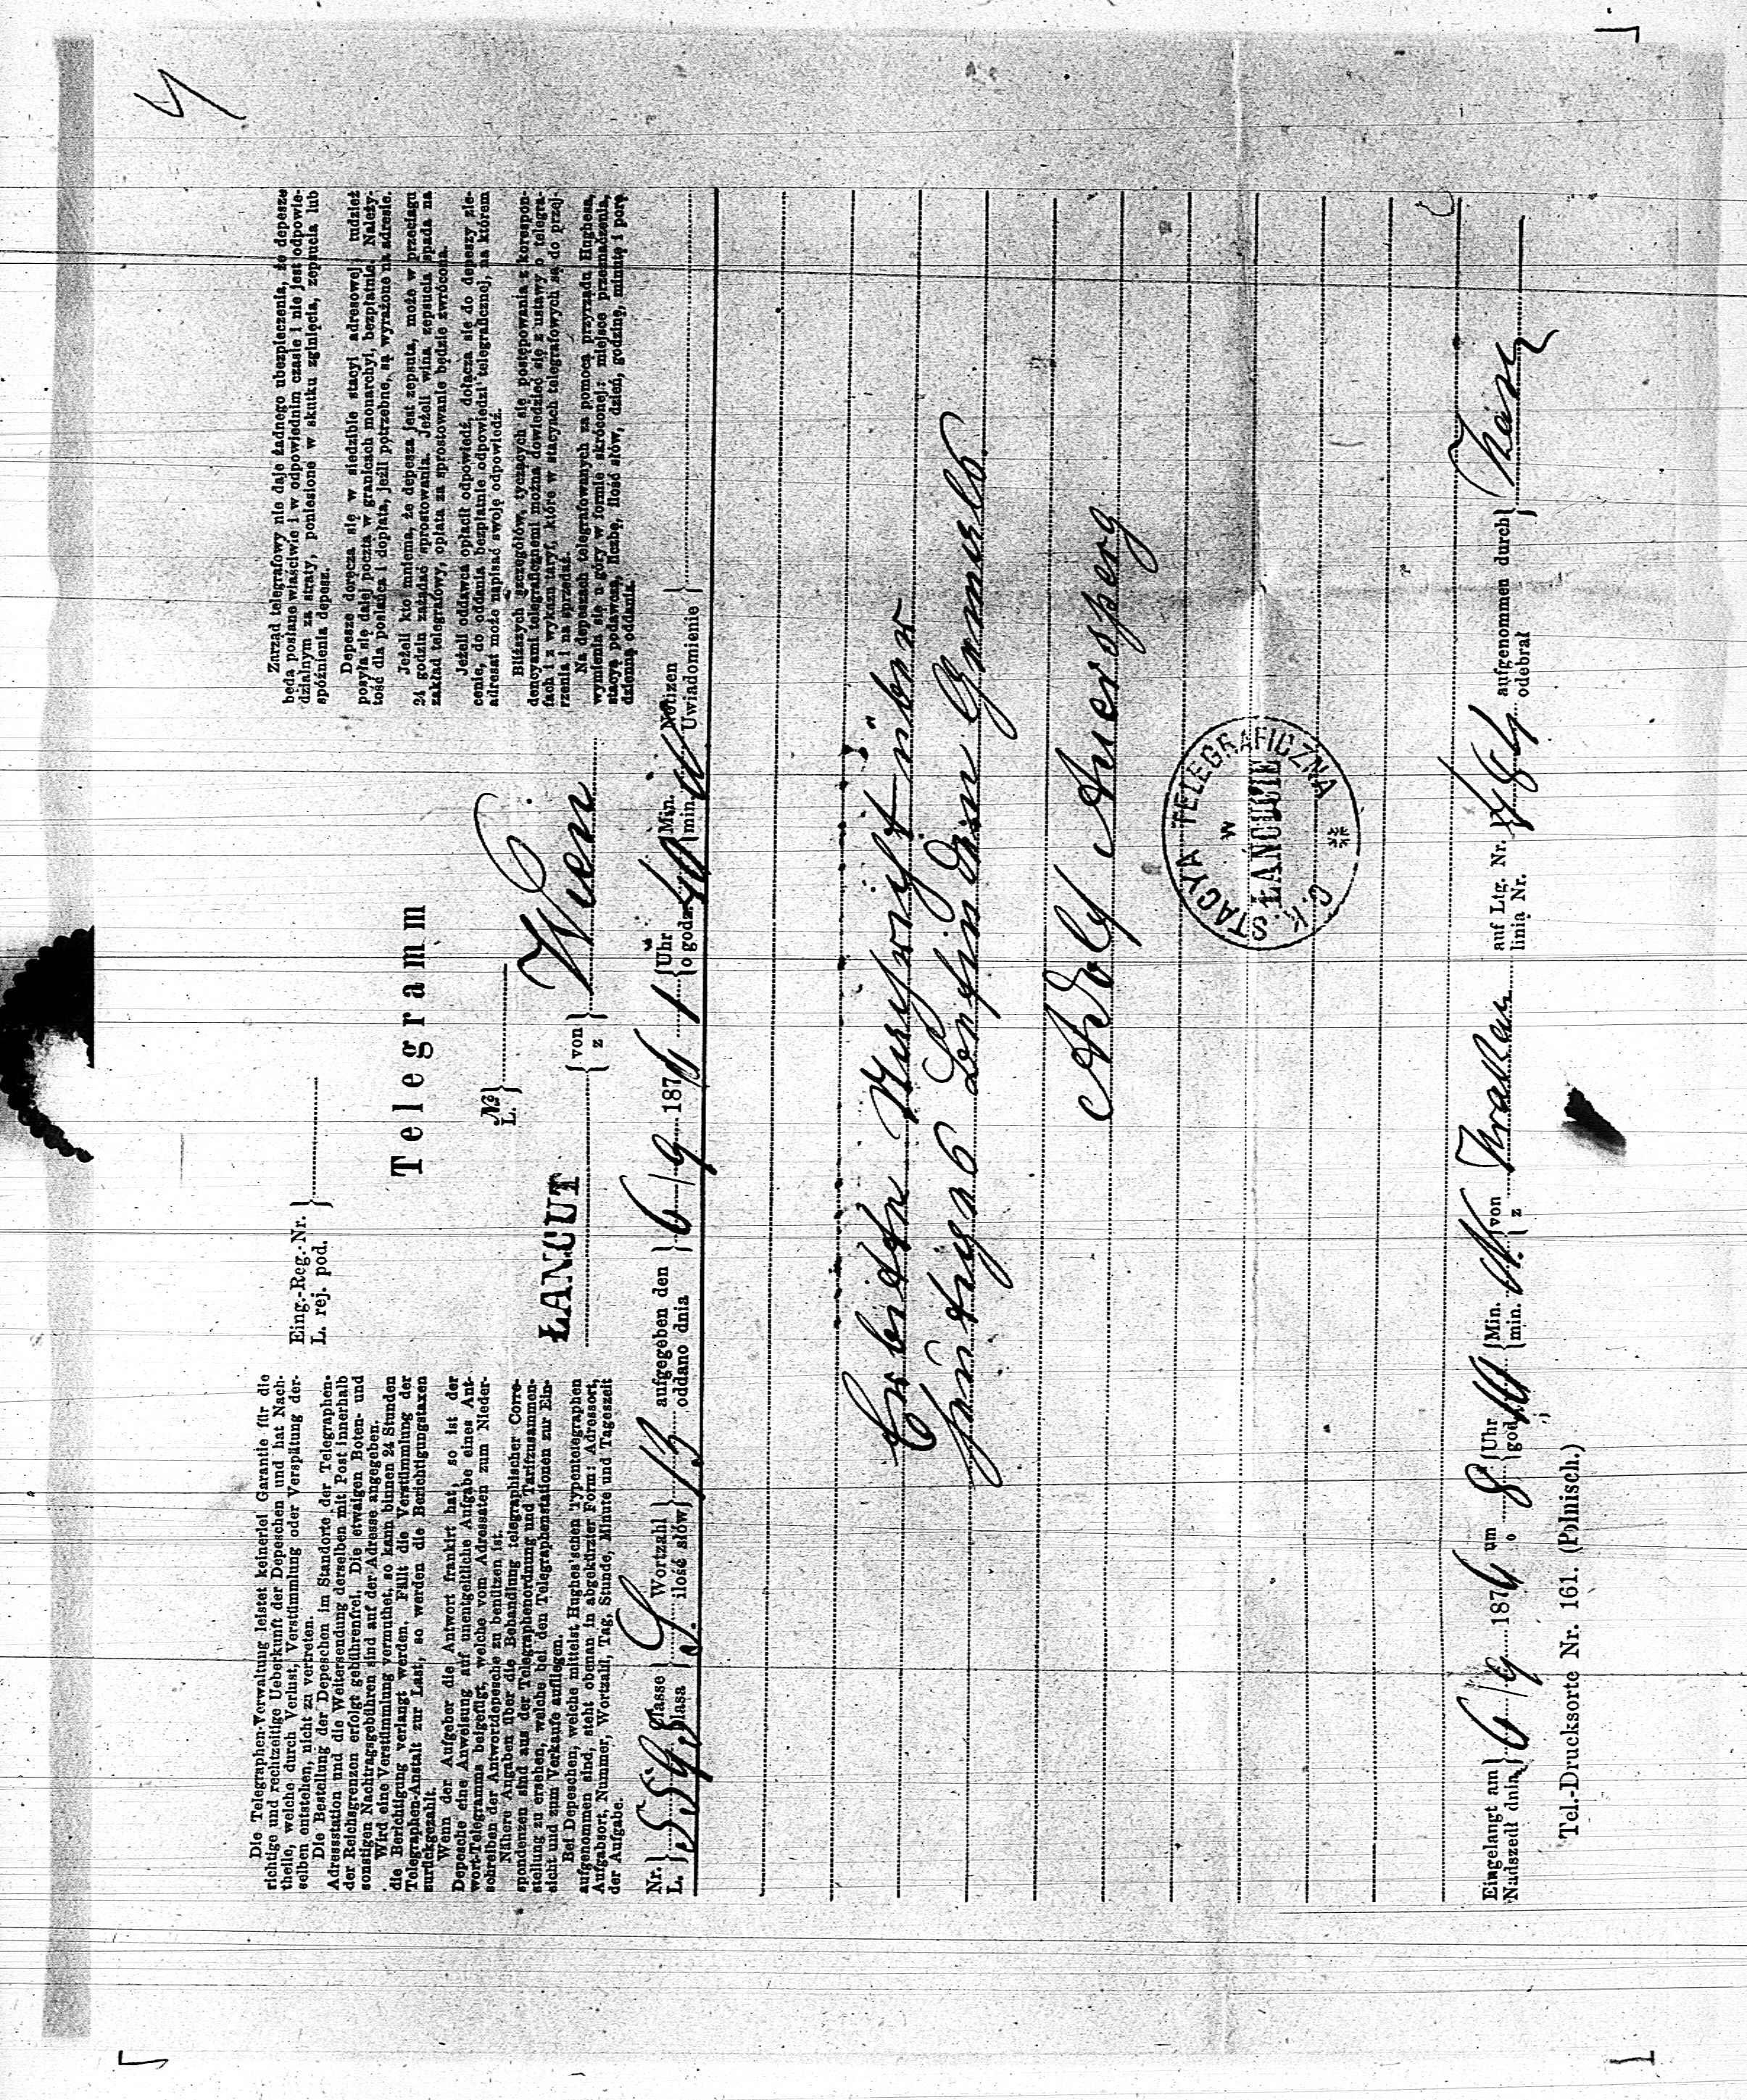 Die Telegraphen-Verwaltung leistet keinerlei Garantie für die
richtige und rechtzeitige Ueberkunft der Depeschen und hat Nach-
theile, welche durch Verlust, Verstümmlung oder Verspätung der-
selben entstehen, nicht zu vertreten.
Die Bestellung der Depeschen im Standorte der Telegraphen-
Adressstation und die Weitersendung derselben mit Post innerhalb
der Reichsgrenzen erfolgt gebührenfrei. Die etwaigen Boten- und
sonstigen Nachtragsgebühren sind auf der Adresse angegeben.
Wird eine Verstümmlung vermuthet, so kann binnen 24 Stunden
die Berichtigung verlangt werden. Fällt die Verstümmlung der
Telegraphen-Anstalt zur Last, so werden die Berichtigungstaxen
zurückgezahlt.
Wenn der Aufgeber die Antwort frankirt hat, so ist der
Depesche eine Anweisung auf unentgeltliche Aufgabe eines Ant-
wort-Telegramms beigefügt, welche vom Adressaten zum Nieder-
schreiben der Antwortdepesche zu benützen ist.
Nähere Angaben über die Behandlung telegraphischer Corre-
spondenzen sind aus der Telegraphenordnung und Tarifzusammen-
stellung zu ersehen, welche bei den Telegraphenstationen zur Ein-
sicht und zum Verkaufe aufliegen.
Bei Depeschen, welche mittelst Hughes'schen Typentelegraphen
aufgenommen sind, steht obenan in abgekürzter Form: Adressort,
Aufgabsort, Nummer, Wortzahl, Tag, Stunde, Minute und Tageszeit
der Aufgabe.
Eing.-Reg.-Nr.
L. rej. pod.
Telegramm
№
L.
ŁAŃCUT
von Wien
z
Zarząd telegrafowy nie daje żadnego ubezpieczenia, że depesze
będą posłane właściwie i w odpowiednim czasie i nie jest odpowie-
dzialnym za straty, poniesione w skutku zginięcia, zepsucia lub
spóźnienia depesz.
Depesze doręcza się w siedzibie stacyi adresowej, tudzież
posyła się dalej pocztą w granicach monarchyi, bezpłatnie. Należy-
tość dla posłańca i dopłata, jeźli potrzebne, są wyrażone na adresie.
Jeżeli kto mniema, że depesza jest zepsuta, może w przeciągu
24 godzin zażądać sprostowania. Jeżeli wina zepsucia spada na
zakład telegrafowy, opłata za sprostowanie będzie zwrócona.
Jeżeli oddawca opłacił odpowiedź, dołącza się do depeszy zle-
cenie, do oddania bezpłatnie odpowiedzi telegraficznej, na którem
adresat może napisać swoję odpowiedź.
Bliższych szczegółów, tyczących się postępowania z korespon-
dencyami telegraficznemi można dowiedzieć się z ustawy o telegra-
fach i z wykazu taryf, które w stacyach telegrafowych są do przej-
rzenia i na sprzedaż.
Na depeszach telegrafowanych za pomocą przyrządu Hughesa,
wymienia się u góry w formie skróconej: miejsce przeznaczenia,
stacyę podawczą, liczbę, ilość słów, dzień, godzinę, minutę i porę
dzienną oddania.
Nr. Classe Wortzahl 13 aufgegeben den 6/9 1876 1 Uhr Min. Notizen
L. klasa ilość słów oddano dnia o godz. min. Uwiadomienie
Erbitten Nachricht über
heutiges Befinden Gemels
Adolf Auersperg
C. K. STACYA TELEGRAFICZNA
w
ŁAŃCUCIE
Eingelangt am 6/9 1876 um 8 Uhr Min. von Krakau auf Ltg. Nr. aufgenommen durch
Nadszedł dnia o god. min. z linią Nr. odebrał
Tel.-Drucksorte Nr. 161. (Polnisch.)